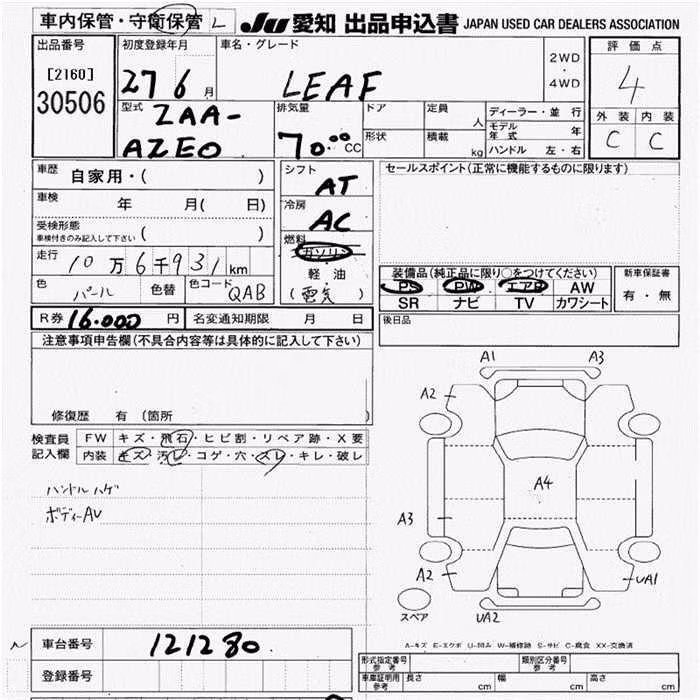 車内保管・守衛保管 L JU 愛知 出品申込書 JAPAN USED CAR DEALERS ASSOCIATION
出品番号
[2160]
30506
初度登録年月
27 6 月
車名・グレード
LEAF
2WD
・
4WD
評価点
4
外装 内装
C C
型式
ZAA-
AZE0
排気量
70.00 CC
ドア
定員
人
形状
積載
kg
ディーラー・並行
モデル年式 年
ハンドル 左・右
車歴
自家用・( )
車検
年 月( 日)
受検形態
車検付きのみ記入して下さい ( )
走行
10万6千931 km
色
パール
色替
色コード
QAB
シフト
AT
冷房
AC
燃料
ガソリン
軽油
(電気)
セールスポイント(正常に機能するものに限ります)
装備品(純正品に限り○をつけてください)
PS PW エアB AW
SR ナビ TV カワシート
新車保証書
有・無
R券 16.000 円 名変通知期限 月 日
後日品
注意事項申告欄(不具合内容等は具体的に記入して下さい)
修復歴 有 (箇所
検査員
記入欄
FW キズ・飛石・ヒビ割・リペア跡・X要
内装 キズ・汚レ・コゲ・穴・スレ・キレ・破レ
ハンドルハゲ
ボディーAU
A1 A3
A2
A4
A3
A2
UA1
スペア
UA2
A-キズ E-エクボ U-凹み W-補修跡 S-サビ C-腐食 XX-交換済
車台番号 121280
登録番号
形式指定番号
参考
類別区分番号
参考
車庫証明用
参考
長さ cm 幅 cm 高さ cm